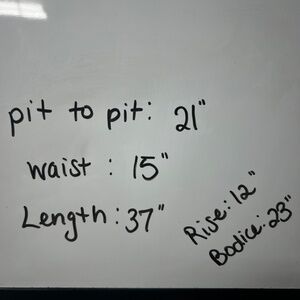 pit to pit: 21"
waist : 15"
Length: 37"
Rise: 12"
Bodice: 23"